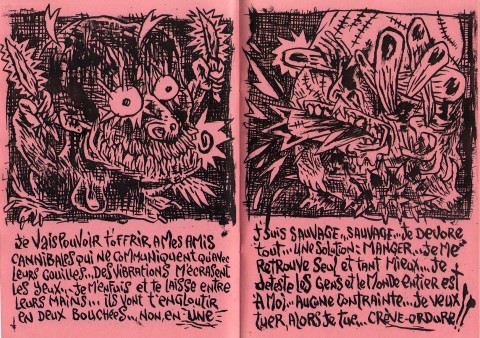 Je VAIS POUVOIR t'OFFRIR A MES AMIS
CANNIBALES QUI NE COMMUNIQUENT QU'AVEC
LEURS COUILLES... DES VIBRATIONS M'ECRASENT
LES YEUX... JE M'ENFUIS ET TE LAISSE ENTRE
LEURS MAINS... ILS VONT T'ENGLOUTIR
EN DEUX BOUCHÉES... NON, EN UNE
J'SUIS SAUVAGE... SAUVAGE... Je DEVORE
tout... UNE SOLUTION: MANGER... Je ME
RETROUVE SEUL ET TANT MIEUX... Je
deteste LES GENS et LE MONDE ENTIER EST
A MOI... AUCUNE CONTRAINTE... Je VEUX
tUER, ALORS Je tue... CRÈVE-ORDURE!!!